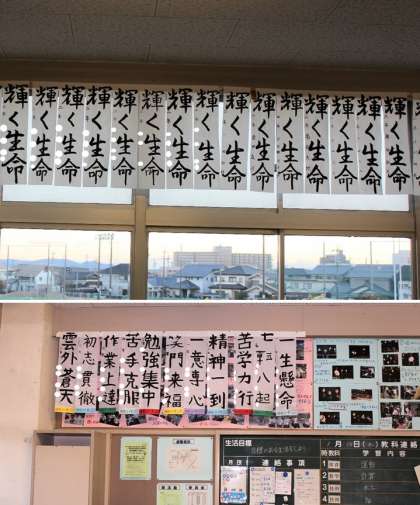 輝く生命
輝く生命
輝く生命
輝く生命
輝く生命
輝く生命
輝く生命
輝く生命
輝く生命
輝く生命
輝く生命
輝く生命
輝く生命
輝く生命
輝く生命
一生懸命
七転八起
苦学力行
精神一到
一意専心
笑門来福
勉強集中
苦手克服
作業上達
初志貫徹
雲外蒼天
生活目標
教科連絡
連絡事項
教科 学習内容
1
2
3
4